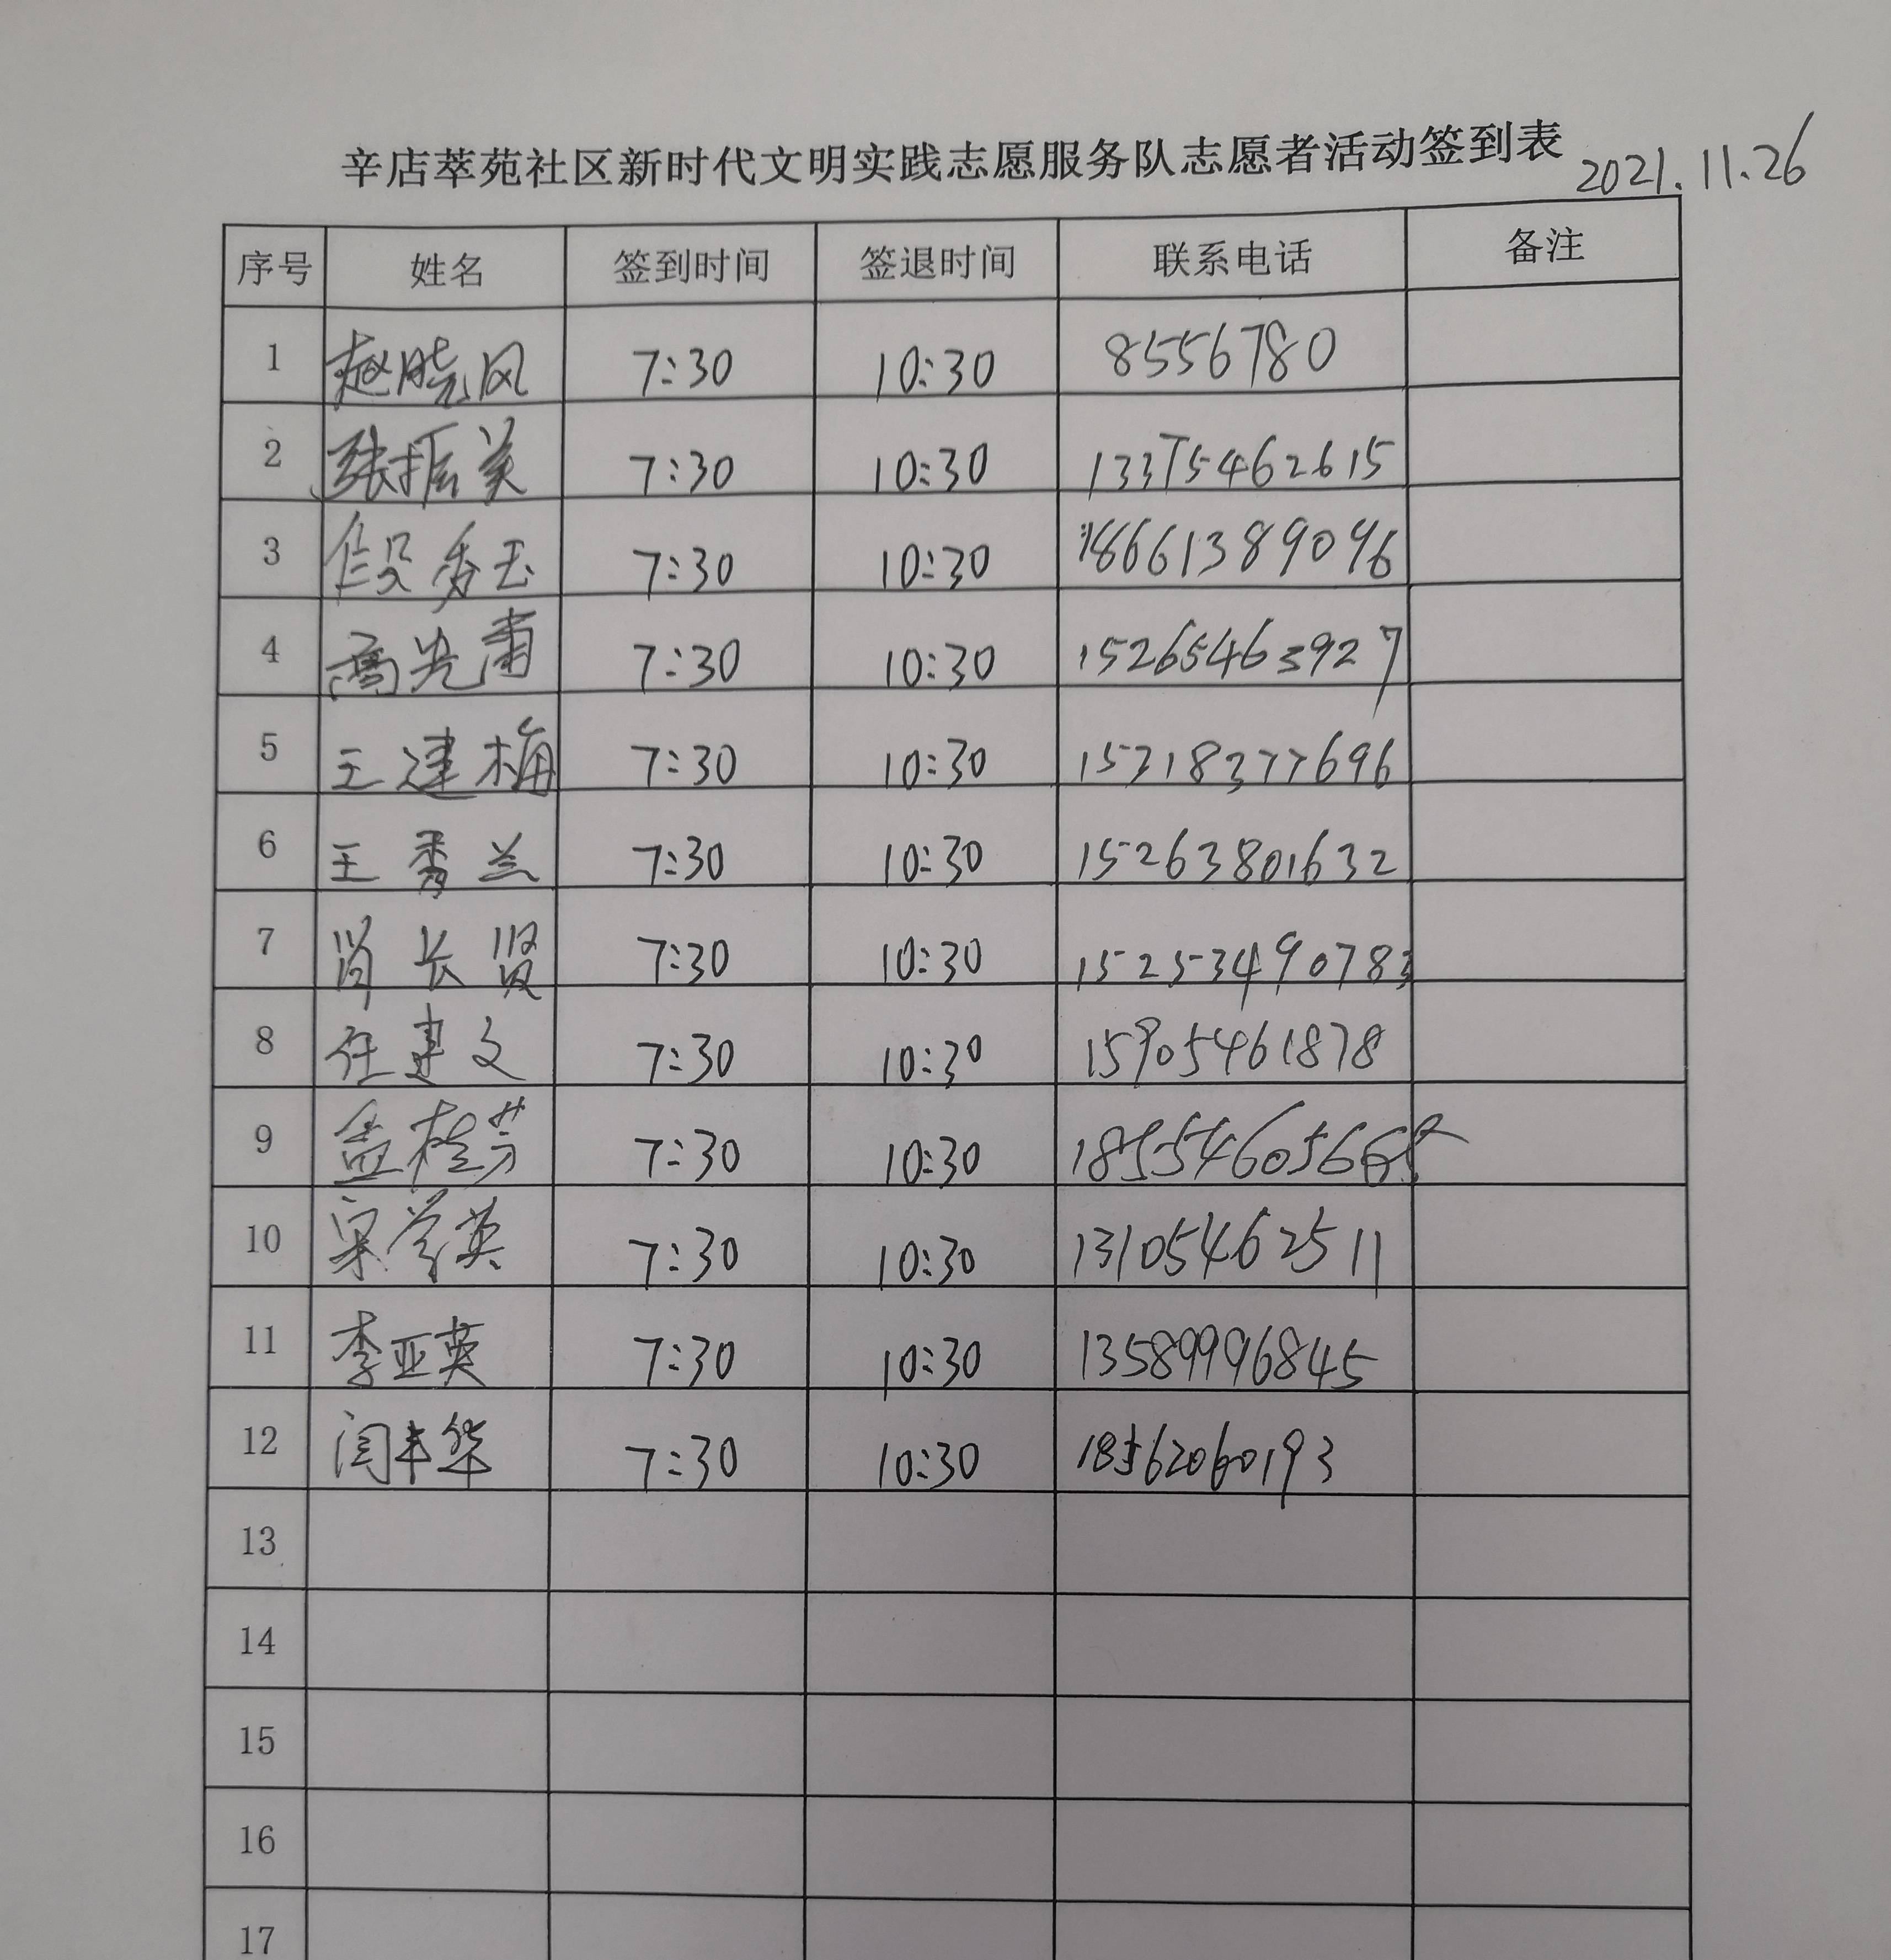 辛店萃苑社区新时代文明实践志愿服务队志愿者活动签到表 2021.11.26
序号 姓名 签到时间 签退时间 联系电话 备注
1 赵晓风 7:30 10:30 8556780
2 张振美 7:30 10:30 13375462615
3 段秀玉 7:30 10:30 18661389096
4 高光甫 7:30 10:30 15265463927
5 王建梅 7:30 10:30 15318377696
6 王秀兰 7:30 10:30 15263801632
7 肖长贤 7:30 10:30 15253490783
8 任建文 7:30 10:30 15905461878
9 孟桂芳 7:30 10:30
10 宋学英 7:30 10:30 13105462511
11 李亚英 7:30 10:30 13589996845
12 闫丰华 7:30 10:30 18562060193
13
14
15
16
17